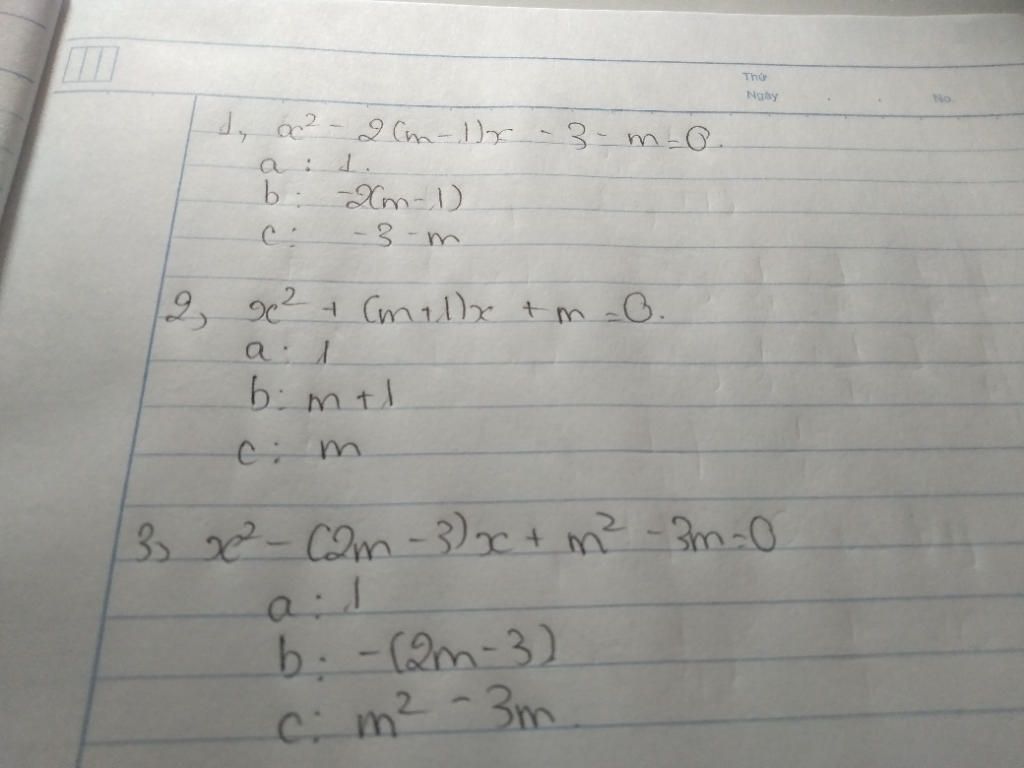 Thứ
Ngày . . No.
1, x² - 2(m-1)x - 3 - m = 0.
a : 1.
b : -2(m-1)
c : -3 - m
2, x² + (m+1)x + m = 0.
a : 1
b : m + 1
c : m
3, x² - (2m - 3)x + m² - 3m = 0
a : 1
b : -(2m - 3)
c : m² - 3m.